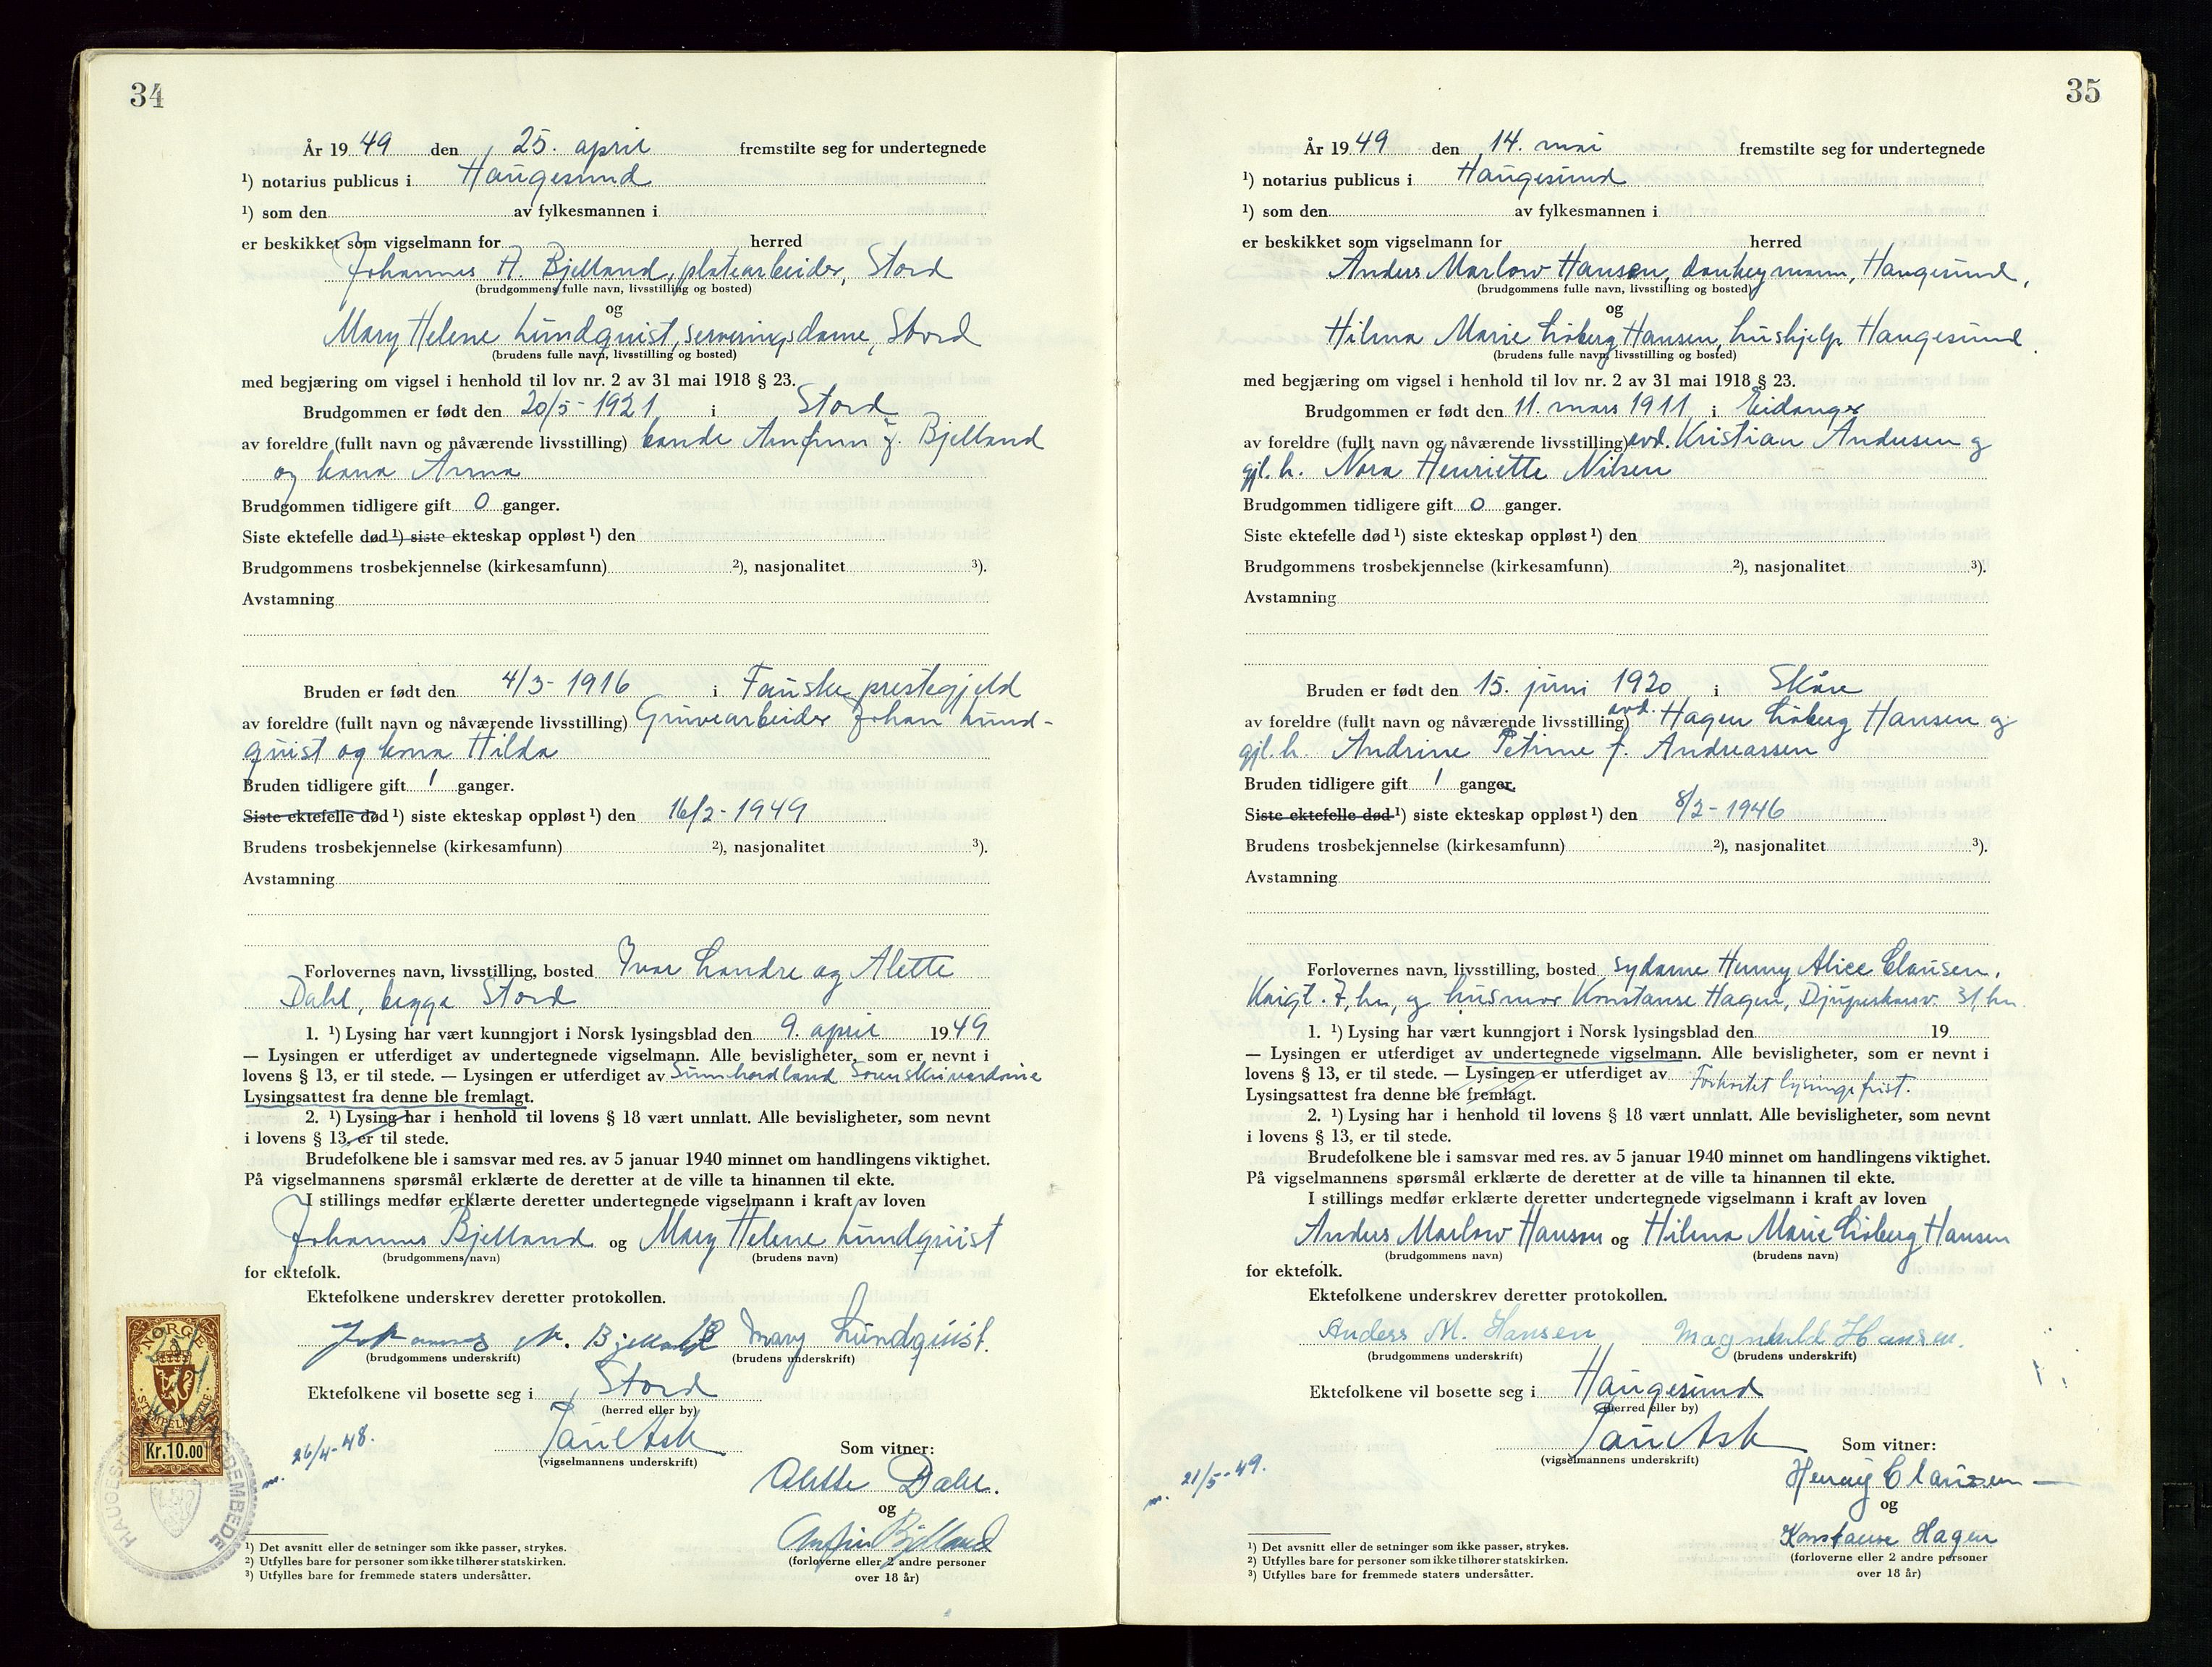 34
År 19 49 den 25. april fremstilte seg for undertegnede
¹) notarius publicus i Haugesund
¹) som den av fylkesmannen i
er beskikket som vigselmann for herred
Johannes A. Bjelland, platearbeider, Stord
(brudgommens fulle navn, livsstilling og bosted)
og
Mary Helene Lundquist, serveringsdame, Stord
(brudens fulle navn, livsstilling og bosted)
med begjæring om vigsel i henhold til lov nr. 2 av 31 mai 1918 § 23.
Brudgommen er født den 20/5-1921 i Stord
av foreldre (fullt navn og nåværende livsstilling) Bjelland
og kona Anna
Brudgommen tidligere gift 0 ganger.
Siste ektefelle død ¹) siste ekteskap oppløst ¹) den
Brudgommens trosbekjennelse (kirkesamfunn) ²), nasjonalitet ³).
Avstamning
Bruden er født den 4/3-1916 i Fauske prestegjeld
av foreldre (fullt navn og nåværende livsstilling) Gruvearbeider Johan Lund-
quist og kona Hilda
Bruden tidligere gift 1 ganger.
Siste ektefelle død ¹) siste ekteskap oppløst ¹) den 16/2-1949
Brudens trosbekjennelse (kirkesamfunn) ²), nasjonalitet ³).
Avstamning
Forlovernes navn, livsstilling, bosted Ivar Landre og Alette
Dahl, begge Stord
1. ¹) Lysing har vært kunngjort i Norsk lysingsblad den 9. april 1949
— Lysingen er utferdiget av undertegnede vigselmann. Alle bevisligheter, som er nevnt i
lovens § 13, er til stede. — Lysingen er utferdiget av Sunnhordland Sorenskriverdøme
Lysingsattest fra denne ble fremlagt.
2. ¹) Lysing har i henhold til lovens § 18 vært unnlatt. Alle bevisligheter, som nevnt
i lovens § 13, er til stede.
Brudefolkene ble i samsvar med res. av 5 januar 1940 minnet om handlingens viktighet.
På vigselmannens spørsmål erklærte de deretter at de ville ta hinannen til ekte.
I stillings medfør erklærte deretter undertegnede vigselmann i kraft av loven
Johannes Bjelland og Mary Helene Lundquist
(brudgommens navn) (brudens navn)
for ektefolk.
Ektefolkene underskrev deretter protokollen.
Johannes A. Bjelland Mary Lundquist.
(brudgommens underskrift) (brudens underskrift)
Ektefolkene vil bosette seg i Stord
(herred eller by)
Paul Ask
(vigselmannens underskrift)
Som vitner:
Alette Dahl.
og
Bjelland
(forloverne eller 2 andre personer
over 18 år)
m. 26/4-48.
NORGE
STEMPELMERKE
Kr.10.00
¹) Det avsnitt eller de setninger som ikke passer, strykes.
²) Utfylles bare for personer som ikke tilhører statskirken.
³) Utfylles bare for fremmede staters undersåtter.
35
År 19 49 den 14. mai fremstilte seg for undertegnede
¹) notarius publicus i Haugesund
¹) som den av fylkesmannen i
er beskikket som vigselmann for herred
Anders Marlow Hansen, donkeymann, Haugesund,
(brudgommens fulle navn, livsstilling og bosted)
og
Hilma Marie Liøberg Hansen, hushjelp Haugesund.
(brudens fulle navn, livsstilling og bosted)
med begjæring om vigsel i henhold til lov nr. 2 av 31 mai 1918 § 23.
Brudgommen er født den 11. mars 1911 i Eidanger
av foreldre (fullt navn og nåværende livsstilling) avd. Kristian Andersen og
gjl. h. Nora Henriette Nilsen
Brudgommen tidligere gift 0 ganger.
Siste ektefelle død ¹) siste ekteskap oppløst ¹) den
Brudgommens trosbekjennelse (kirkesamfunn) ²), nasjonalitet ³).
Avstamning
Bruden er født den 15. juni 1920 i Skåre
av foreldre (fullt navn og nåværende livsstilling) avd. Hagen Liøberg Hansen og
gjl. h. Andrine Petrine f. Andreassen
Bruden tidligere gift 1 ganger.
Siste ektefelle død ¹) siste ekteskap oppløst ¹) den 8/2-1946
Brudens trosbekjennelse (kirkesamfunn) ²), nasjonalitet ³).
Avstamning
Forlovernes navn, livsstilling, bosted sydame Henny Alice Clausen,
7, hn, og husmor Konstanse Hagen, 31, hn.
1. ¹) Lysing har vært kunngjort i Norsk lysingsblad den 19
— Lysingen er utferdiget av undertegnede vigselmann. Alle bevisligheter, som er nevnt i
lovens § 13, er til stede. — Lysingen er utferdiget av Forkortet lysingsfrist.
Lysingsattest fra denne ble fremlagt.
2. ¹) Lysing har i henhold til lovens § 18 vært unnlatt. Alle bevisligheter, som nevnt
i lovens § 13, er til stede.
Brudefolkene ble i samsvar med res. av 5 januar 1940 minnet om handlingens viktighet.
På vigselmannens spørsmål erklærte de deretter at de ville ta hinannen til ekte.
I stillings medfør erklærte deretter undertegnede vigselmann i kraft av loven
Anders Marlow Hansen og Hilma Marie Liøberg Hansen
(brudgommens navn) (brudens navn)
for ektefolk.
Ektefolkene underskrev deretter protokollen.
Anders M. Hansen Magnhild Hansen.
(brudgommens underskrift) (brudens underskrift)
Ektefolkene vil bosette seg i Haugesund
(herred eller by)
Paul Ask
(vigselmannens underskrift)
Som vitner:
Henny Clausen
og
Konstanse Hagen
(forloverne eller 2 andre personer
over 18 år)
m. 21/5-49.
¹) Det avsnitt eller de setninger som ikke passer, strykes.
²) Utfylles bare for personer som ikke tilhører statskirken.
³) Utfylles bare for fremmede staters undersåtter.